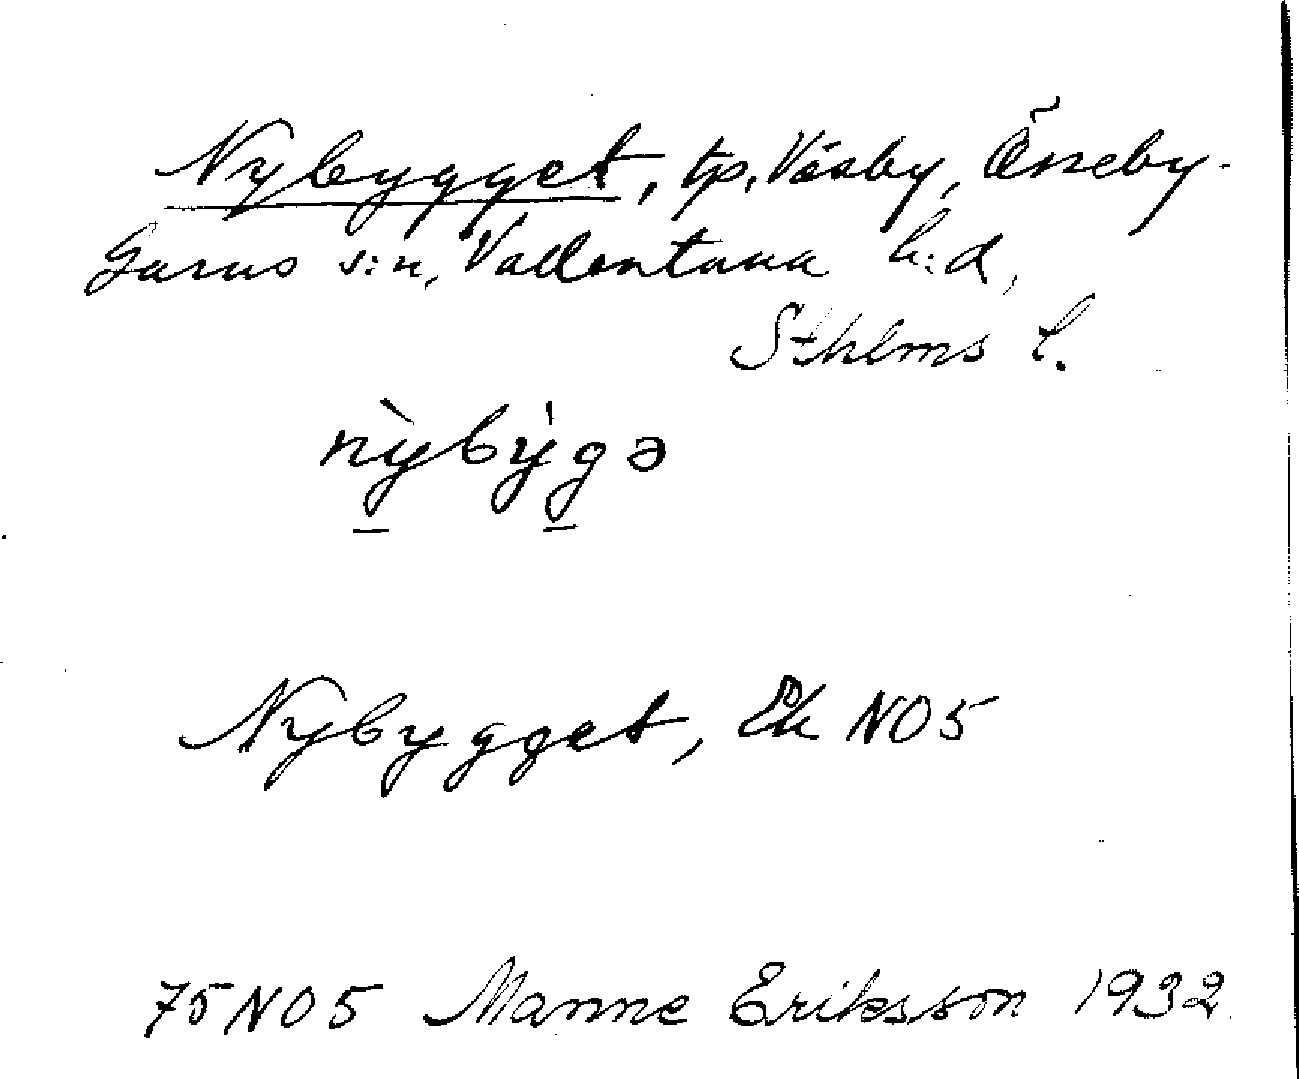 Nybygget, tp, Väsby, Össeby-
Garns s:n, Vallentuna h:d,
Sthlms l.
nỳbỳgə
Nybygget, Ek NO5
75NO5 Manne Eriksson 1932